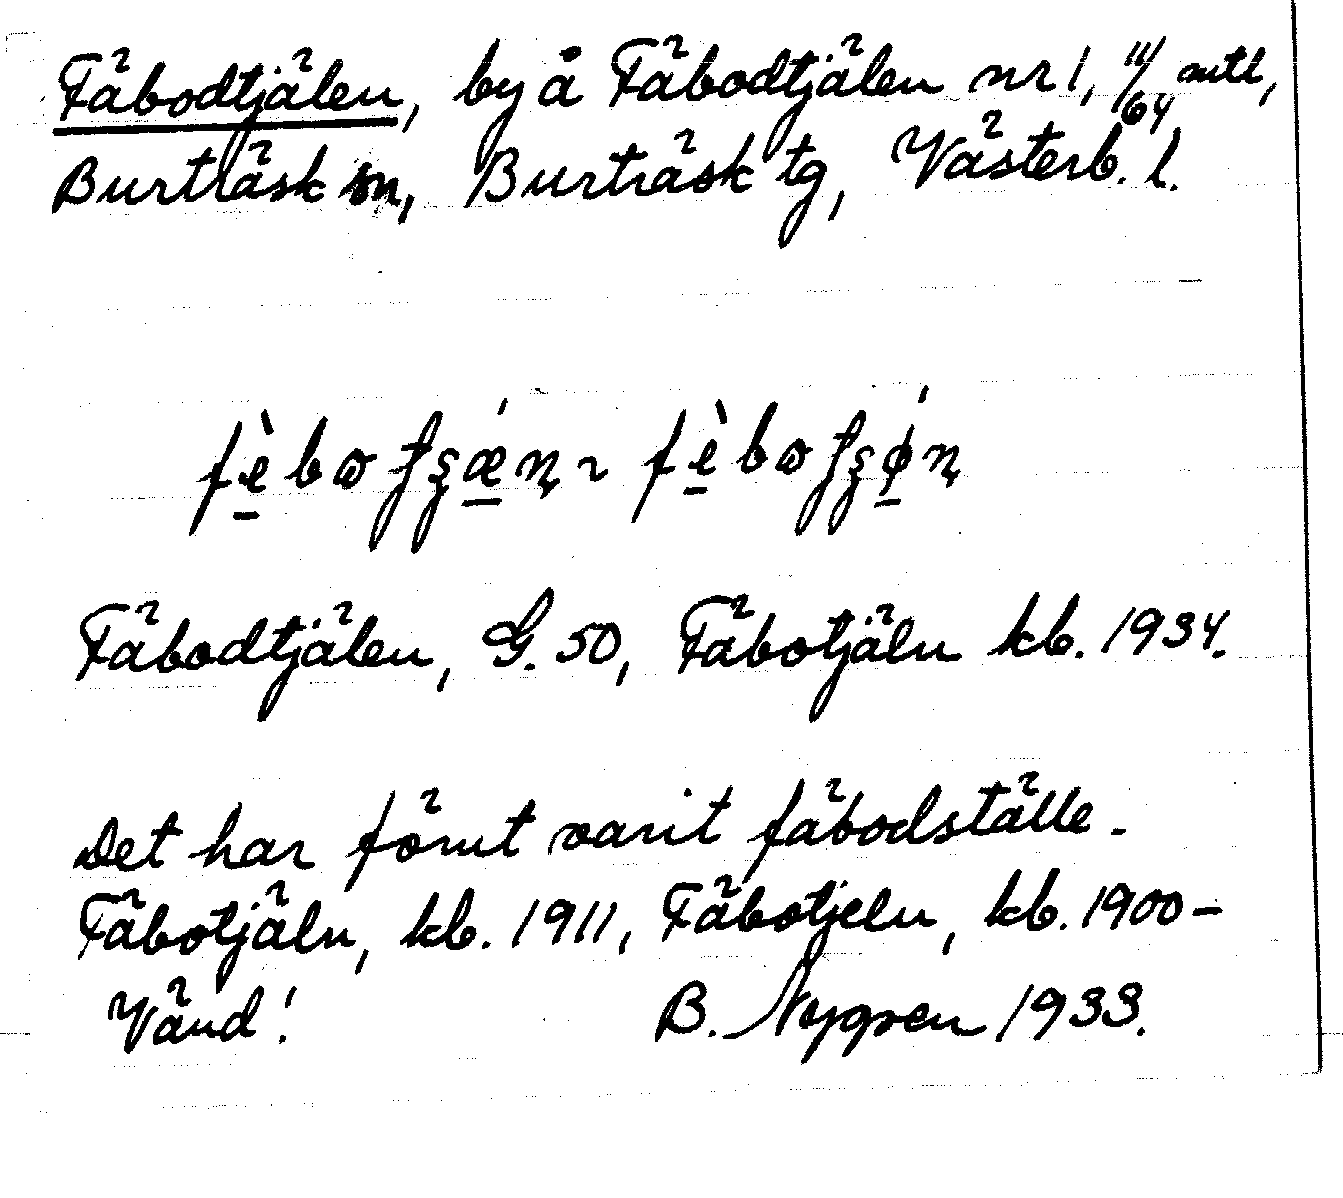 Fäbodtjälen, by å Fäbodtjälen nr 1, 11/64 mtl,
Burträsk sn, Burträsk tg, Västerb. l.
Fäbodtjälen, G. 50, Fäbotjäln kb. 1934.
Det har förut varit fäbodställe.
Fäbotjäln, kb. 1911, Fäbotjeln, kb. 1900–
Vänd! B. Nygren 1933.